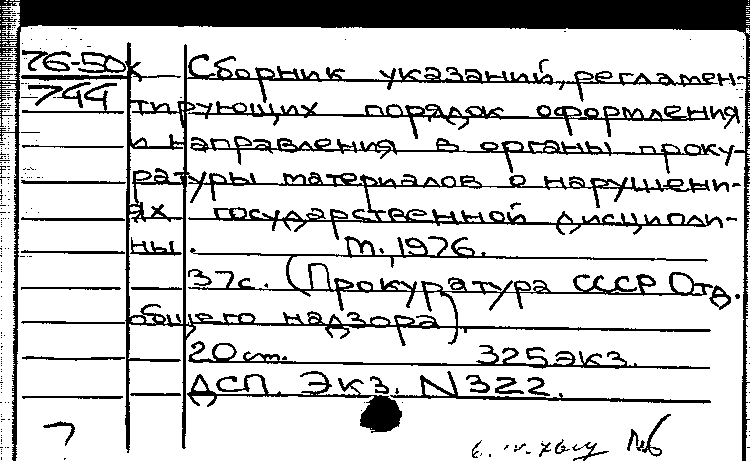 76-50х Сборник указаний, регламен-
744 тирующих порядок оформления
и направления в органы проку-
ратуры материалов о нарушени-
ях государственной дисципли-
ны. М., 1976.
37с. (Прокуратура СССР Отд.
общего надзора).
20см. 325экз.
ДСП. Экз. N322.
№6